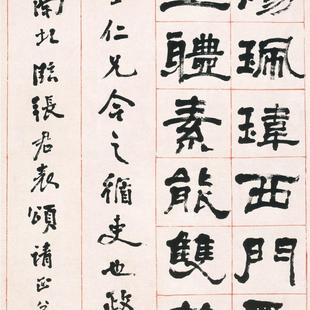 陽珮瑋西門
體素能雙
仁兄今之循吏也政
北臨張君表頌請正